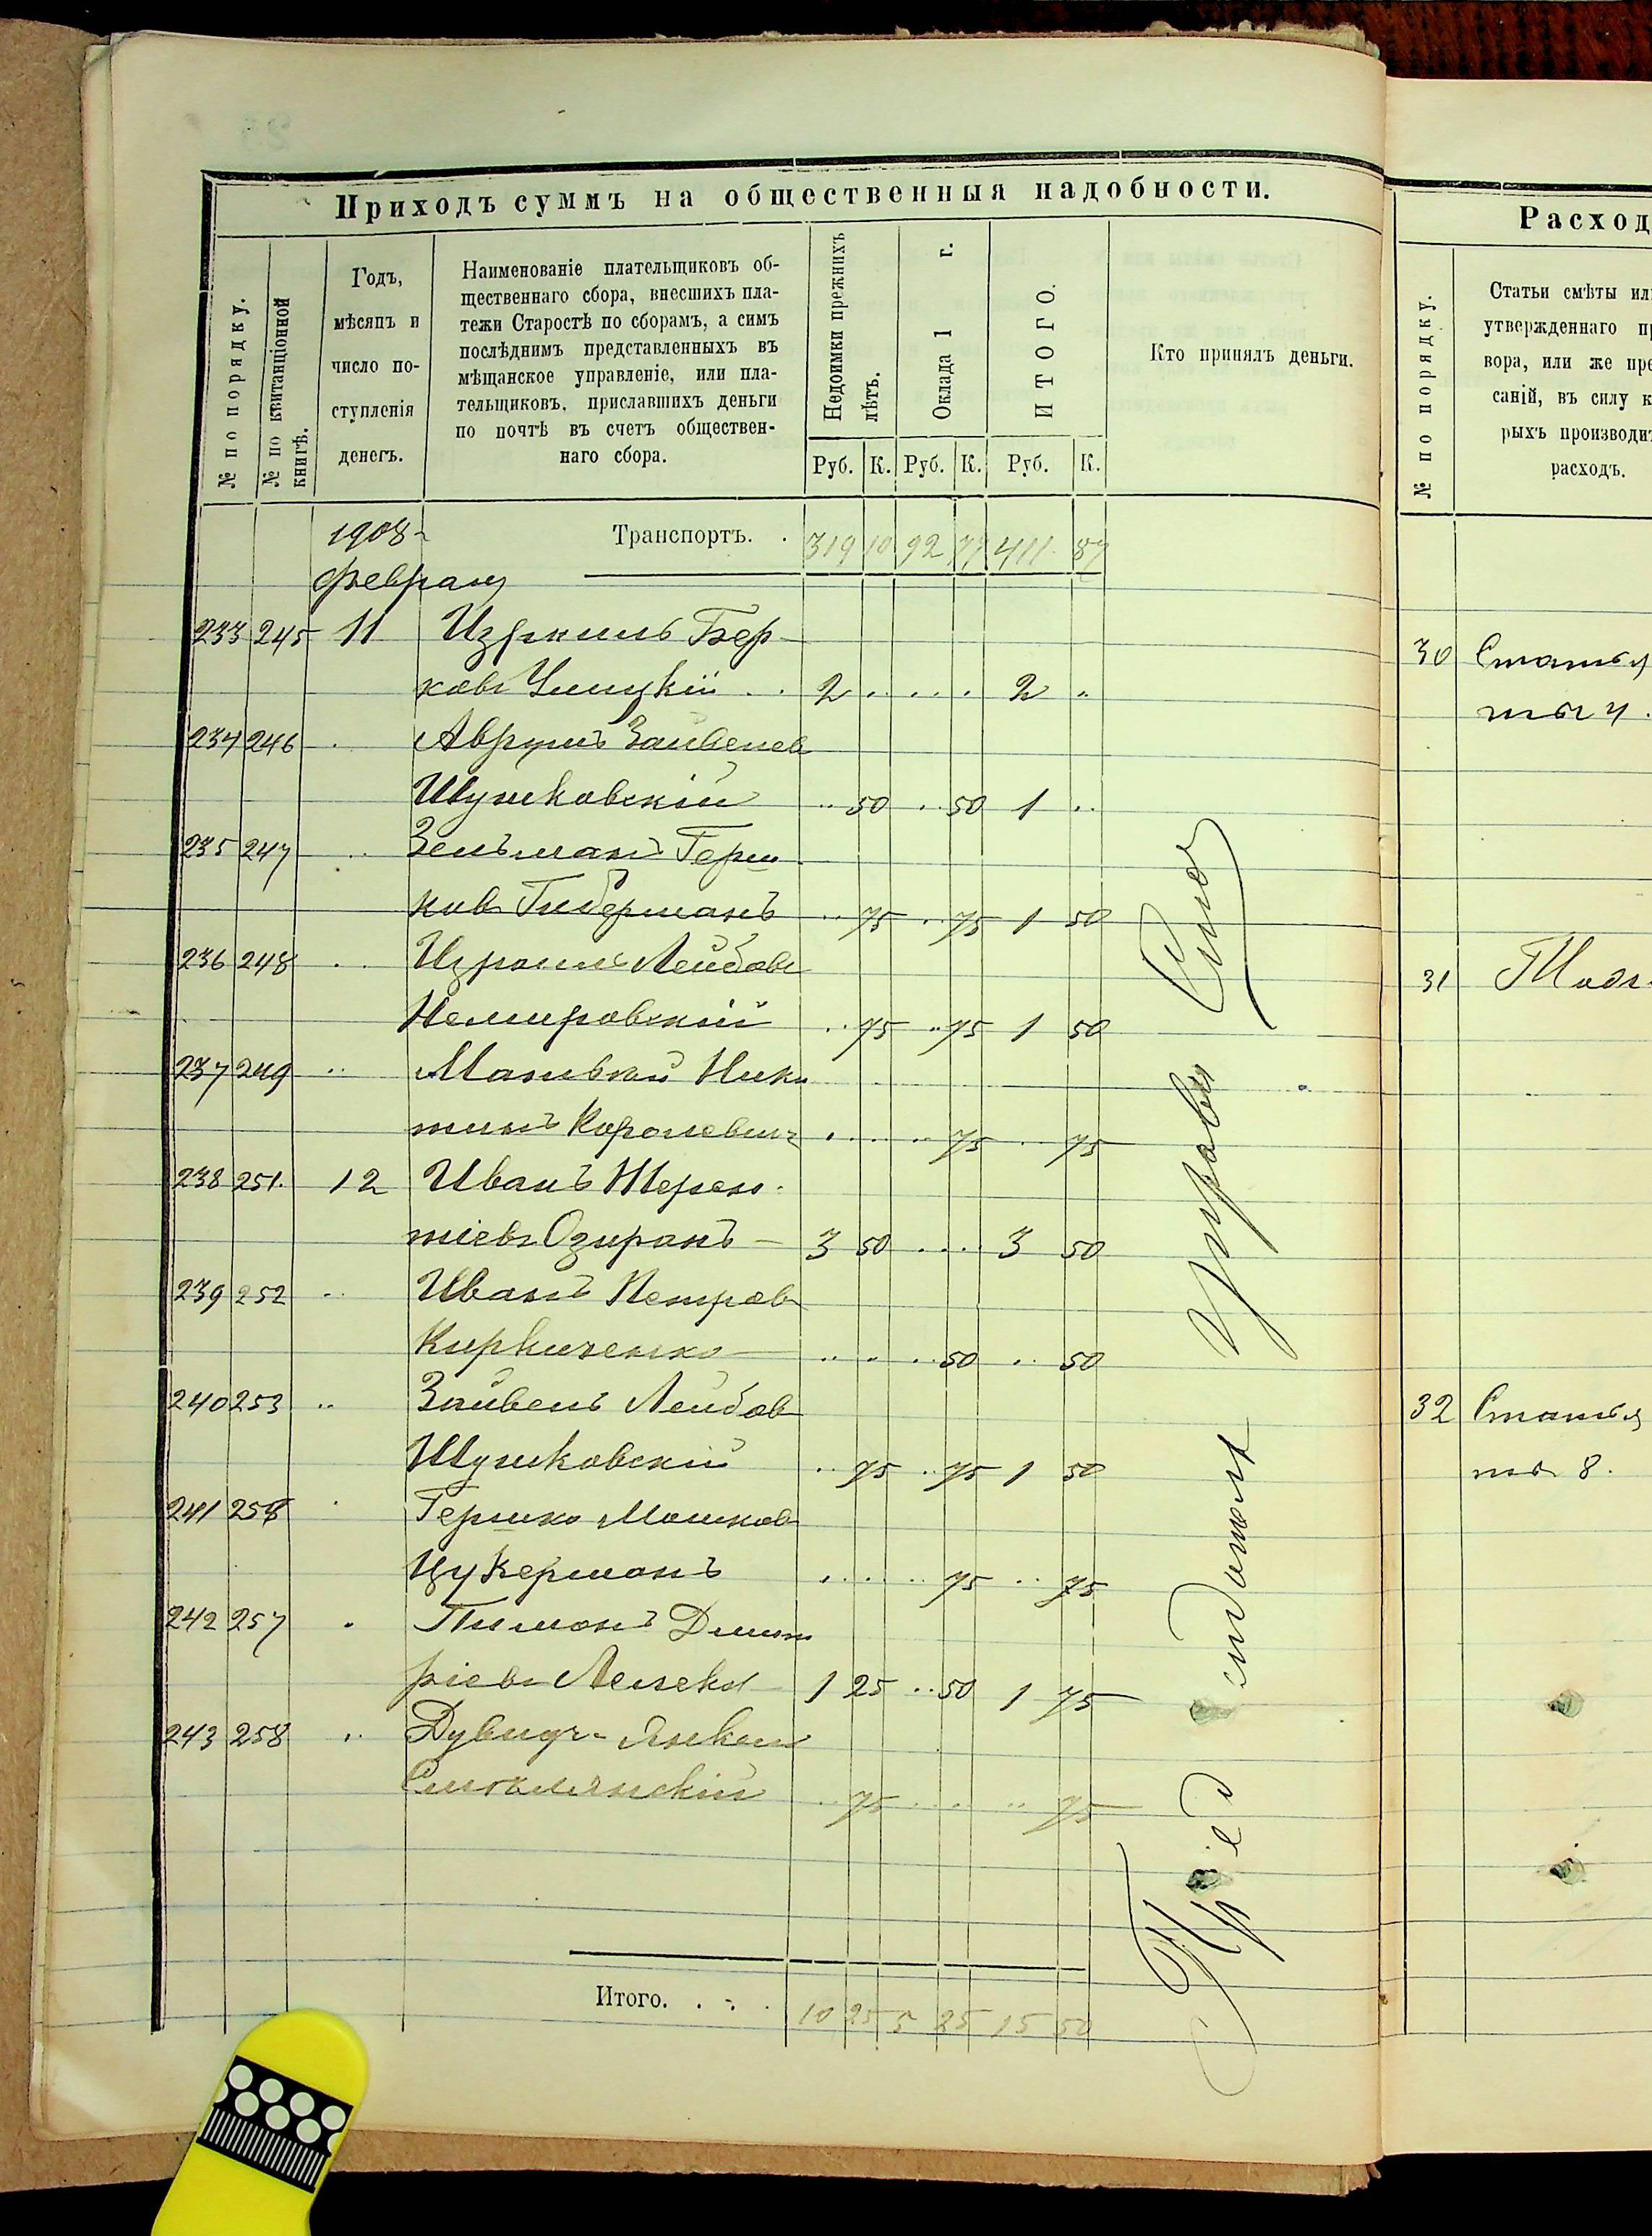 Приходъ суммъ на общественныя надобности.
№ по порядку.
№ по квитанціонной книгѣ.
Годъ,
мѣсяцъ и
число по-
ступленія
денегъ.
Наименованіе плательщиковъ об-
щественнаго сбора, внесшихъ пла-
тежи Старостѣ по сборамъ, а симъ
послѣднимъ представленныхъ въ
мѣщанское управленіе, или пла-
тельщиковъ, приславшихъ деньги
по почтѣ въ счетъ обществен-
наго сбора.
Недоимки прежнихъ лѣтъ.
Оклада 1 г.
ИТОГО.
Кто принялъ деньги.
Руб. К. Руб. К. Руб. К.
1908
Транспортъ. . 319 10 92 77 411 87
февраля
233 245 11 Израиль Бер-
ковъ 2 . . . . 2 ..
234 246 . Аврумъ Зайвелев
Шушковскій .. 50 .. 50 1 ..
235 247 .. Зельманъ Герш
ковъ Гиберманъ .. 75 .. 75 1 50
236 248 .. Израиль Лейбовъ
Немировскій .. 75 .. 75 1 50
237 249 ..
Королевичъ . . . . 75 .. 75
238 251. 12 Иванъ Терен-
тіевъ Озиранъ 3 50 . . . . 3 50
239 252 .. Иванъ Петровъ
Кириченко .. .. .. 50 .. 50
240 253 .. Зайвель Лейбовъ
Шушковскій .. 75 .. 75 1 50
241 . Гершко Мошковъ
Цукерманъ . . . . 75 .. 75
242 257 . Пимонъ Димит
ріевъ 1 25 .. 50 1 75
243 258 .. Дувидъ-Янкель
Смолянскій .. 75 .. .. .. 75
Итого. . . . 10 25 5 25 15 50
Кандидатъ Управы
Расход
№ по порядку.
Статьи смѣты ил
утвержденнаго п
вора, или же пре
саній, въ силу к
рыхъ производит
расходъ.
30 Статья
4.
31
32 Статья
8.